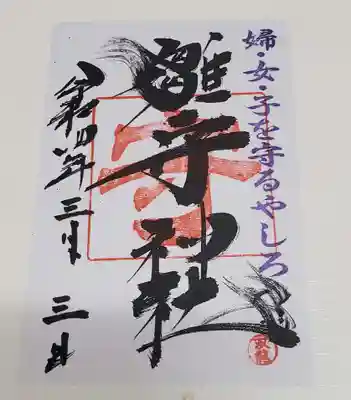 婦・女・子を守るやしろ
雛守神社
令和四年三月三日